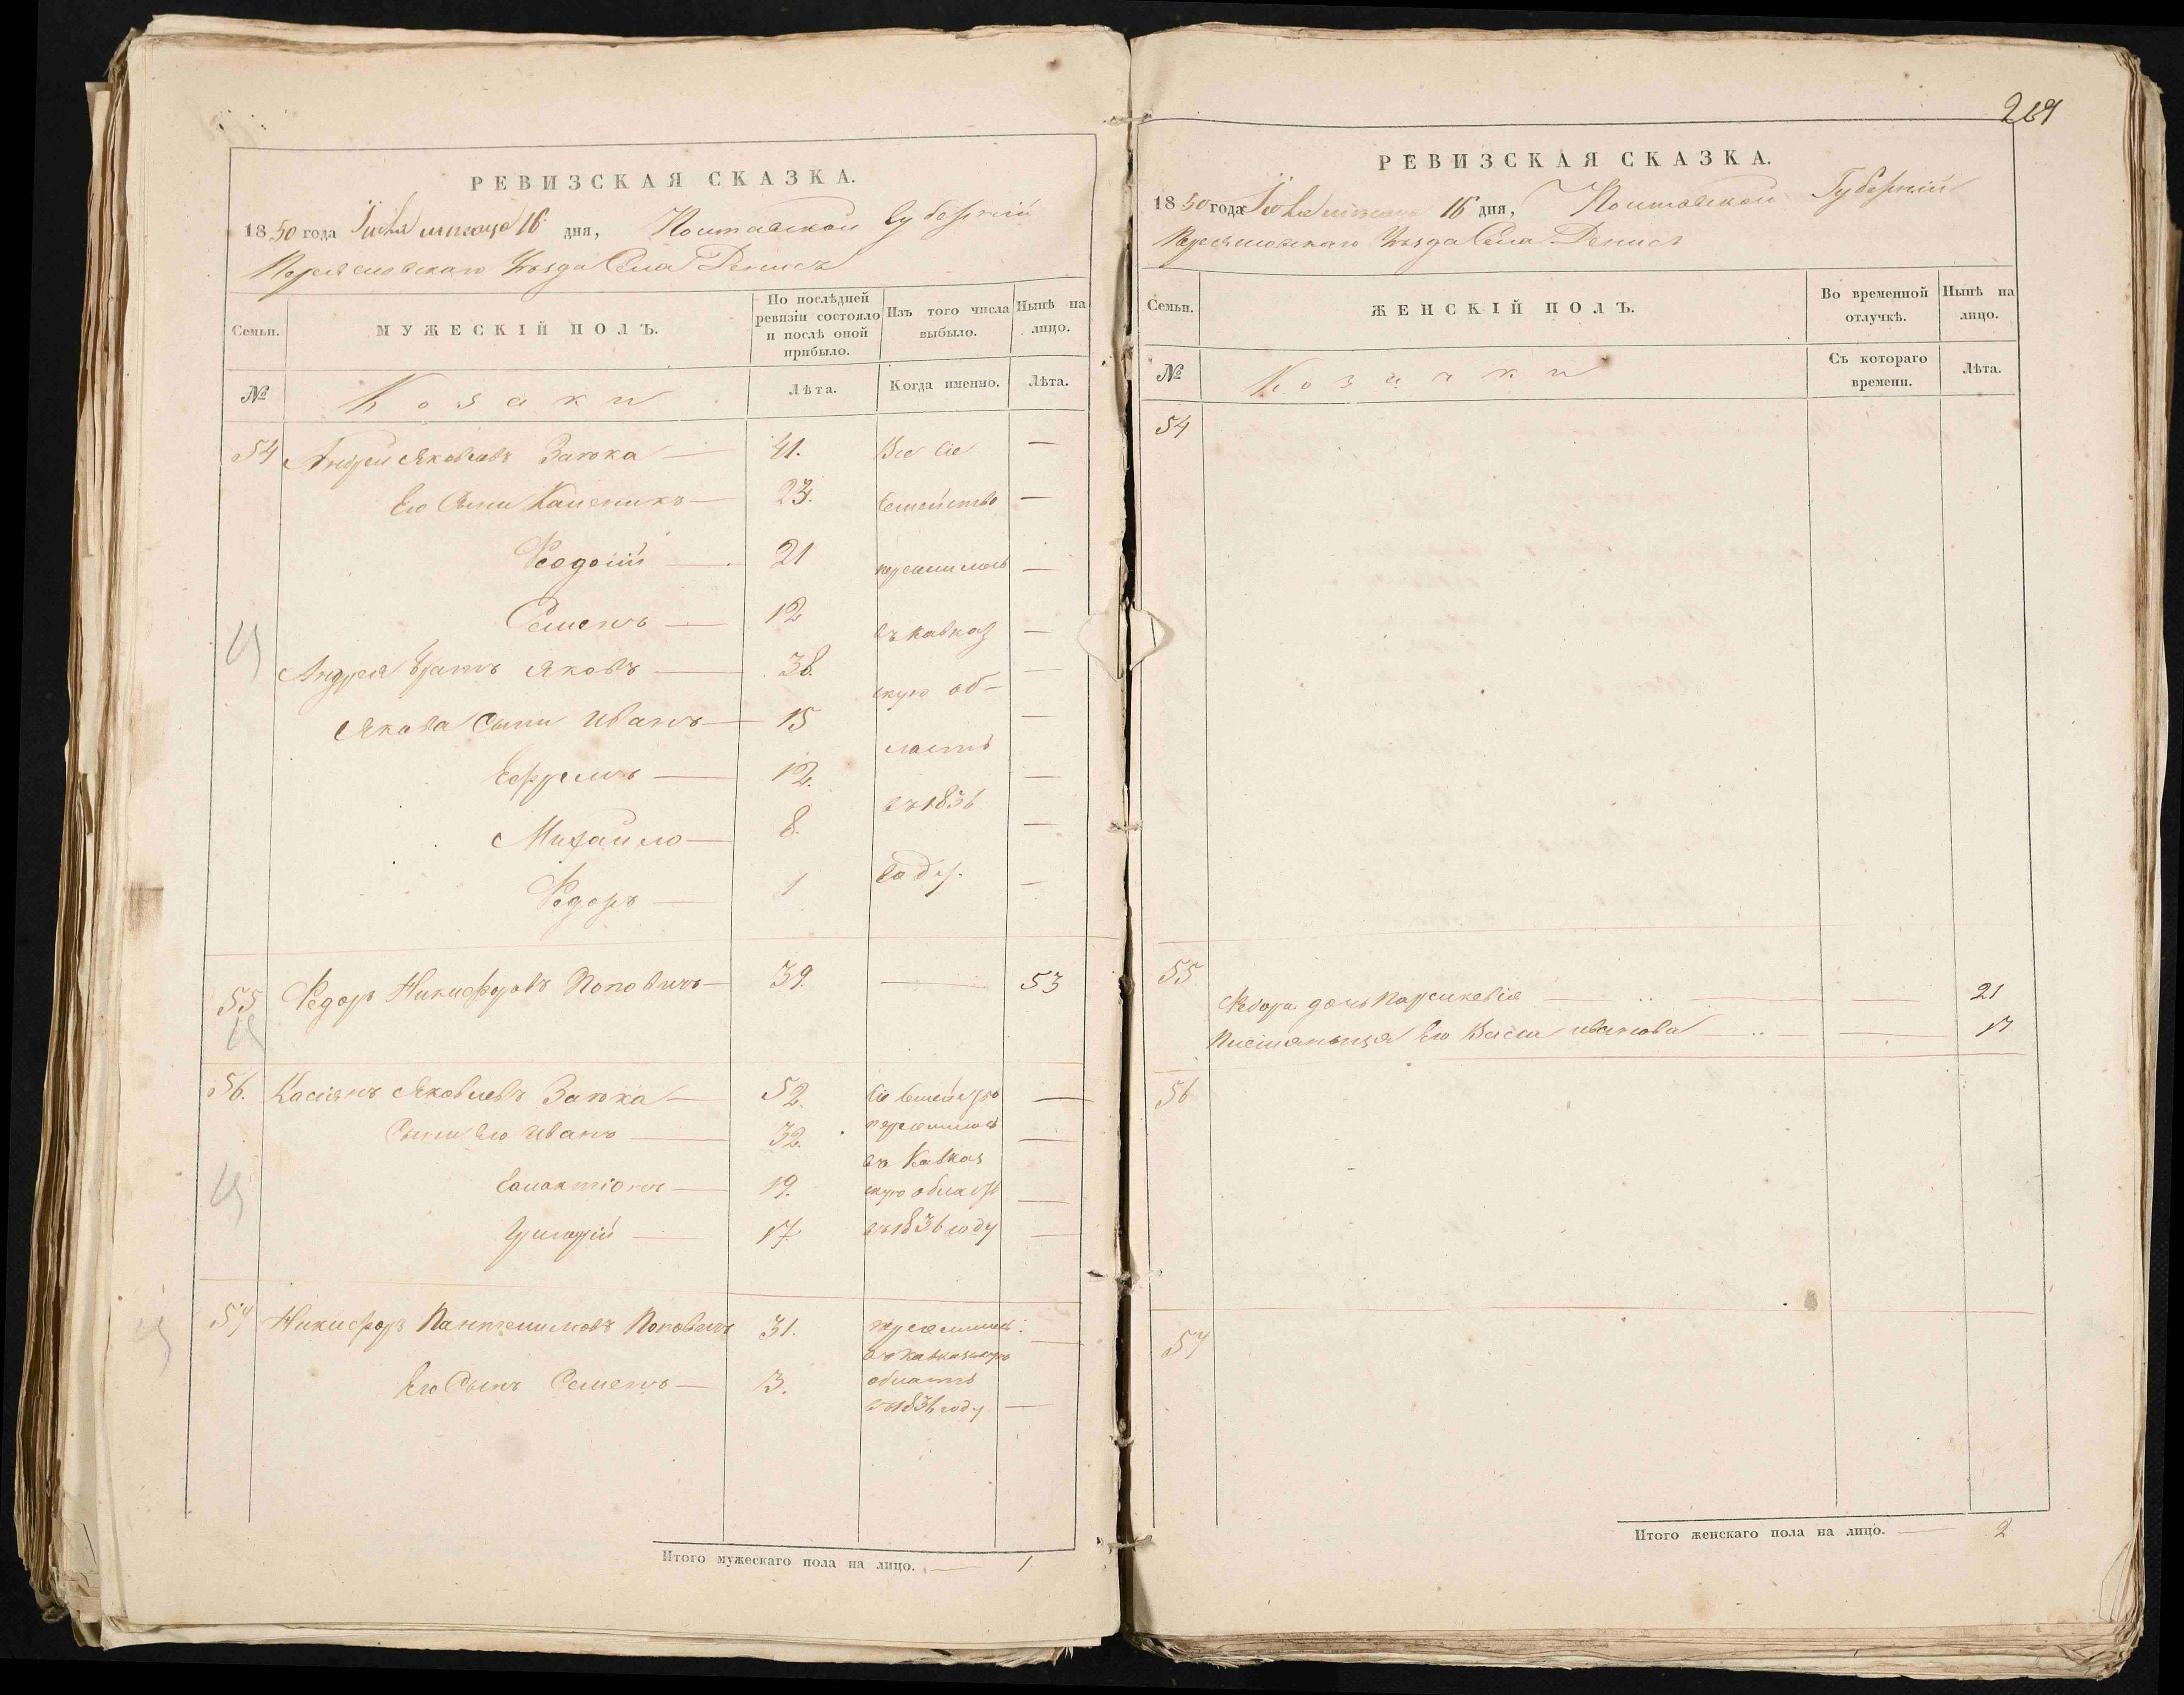 РЕВИЗСКАЯ СКАЗКА.
1850 года Іюля месяца 16 дня, Полтавской Губерніи
Переясловскаго Уѣзда Села Денисъ
Семьи.
МУЖЕСКІЙ ПОЛЪ.
По послѣдней ревизіи состояло и послѣ оной прибыло.
Изъ того числа выбыло.
Нынѣ на лицо.
№
Козаки
Лѣта.
Когда именно.
Лѣта.
54 Андрей Яковлевъ Заика — 41. Все сіе —
Его Сыни Калѣникъ — 23. Семейство —
Феодосій — 21 переселилось —
Семенъ — 12 въ Кавказ —
Андрея братъ Яковъ — 38. скую об- —
Якова Сыни Иванъ — 15 ласть —
Ефремъ — 12. въ 1836 —
Михайло — 8. году. —
Федоръ — 1 —
55 Федоръ Никифоровъ Поповичъ — 39. — 53
56. Касіянъ Яковлевъ Заика — 52. Сіе Семейство —
Сыни Его Иванъ — 32. переселилось —
въ Кавказ
Галактіонъ — 19. скую область —
Григорій — 17. въ 1836 году —
57 Никифоръ Пантелимовъ Поповичъ 31. переселились —
въ Кавказскую
Его Сынъ Семенъ — 3. область
въ 1836 году —
Итого мужескаго пола на лицо. — 1.
269
РЕВИЗСКАЯ СКАЗКА.
1850 года Іюля месяца 16 дня, Полтавской Губерніи
Переясловскаго Уѣзда Села Денисъ
Семьи.
ЖЕНСКІЙ ПОЛЪ.
Во временной отлучкѣ.
Нынѣ на лицо.
№
Козачки
Съ котораго времени.
Лѣта.
54
55
Федора дочь Параскевія — — 21
Племяница Его Васса Иванова — — 17
56
57
Итого женскаго пола на лицо. — 2